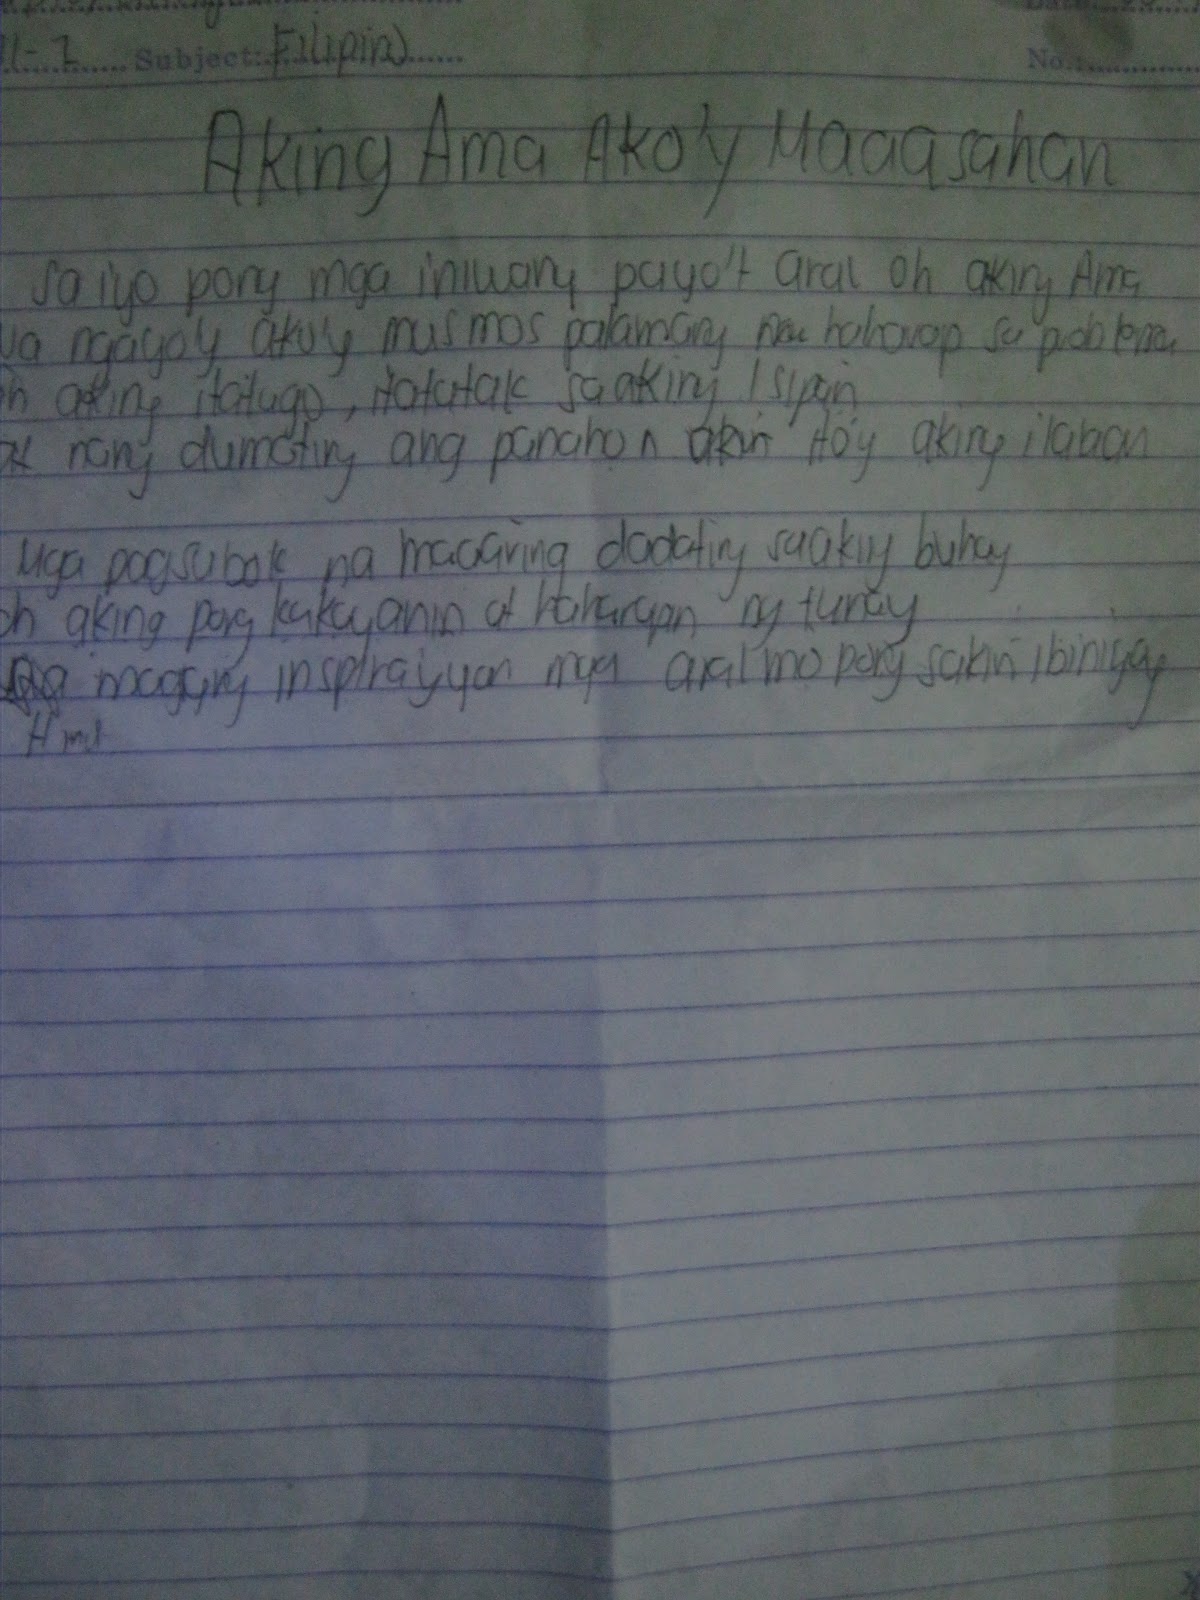 II-7 Subject: Filipino
No.
Aking Ama Ako'y Maaasahan
Sa iyo pong mga iniwang payo't aral oh aking Ama
ngayo'y ako'y musmos palamang na haharap sa problema
oh aking itatago, itatatak saaking Isipan
at nang dumating ang panahon akin ito'y aking ilaban
Mga pagsubok na maaaring dadating saaking buhay
oh aking pong kakayanin at haharapin ng tunay
magging inspirasyon mga aral mo pong sakin ibinigay